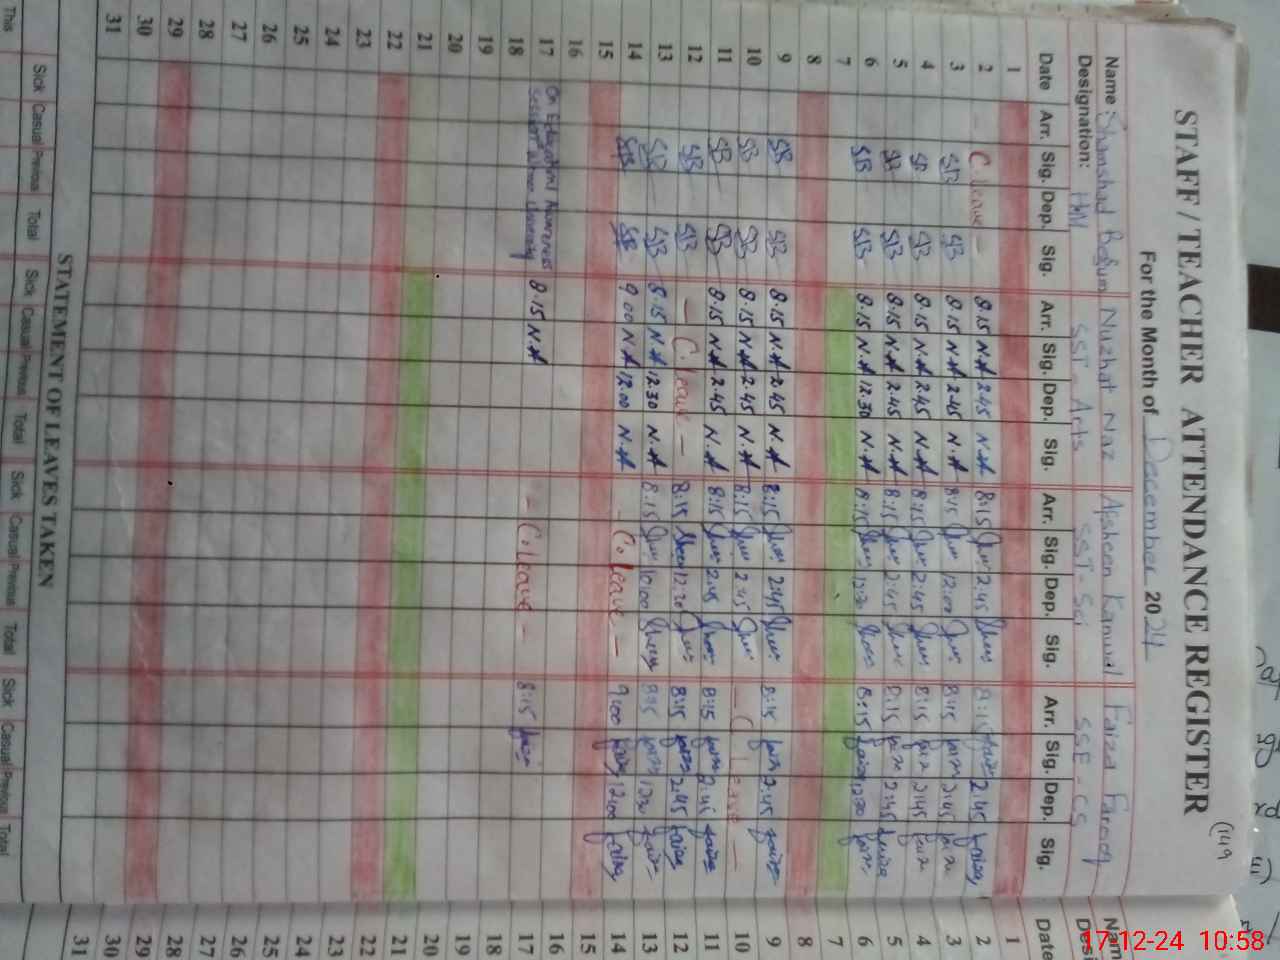 (149
STAFF / TEACHER ATTENDANCE REGISTER
For the Month of December 2024
Name : Shamshad Begum Nuzhat Naz Afsheen Kanwal Faiza Farooq
Designation: HM SST - Arts SST - Sci SSE - CS
Date Arr. Sig. Dep. Sig. Arr. Sig. Dep. Sig. Arr. Sig. Dep. Sig. Arr. Sig. Dep. Sig.
1
2 C. leave - 8.15 N.A 2.45 N.A 8:15 2:45 8:15 2:45
3 SB SB 8.15 N.A 2.45 N.A 8:15 12:00 8:15 2:45
4 SB SB 8.15 N.A 2.45 N.A 8:15 2:45 8:15 2:45
5 SB SB 8.15 N.A 2.45 N.A 8:15 2:45 8:15 2:45
6 SB SB 8.15 N.A 12.30 N.A 8:15 12:30 8:15 1230
7
8
9 SB SB 8.15 N.A 2.45 N.A 8:15 2:45 8:15 2:45
10 SB SB 8.15 N.A 2.45 N.A 8:15 2:45
11 SB SB 8.15 N.A 2.45 N.A 8:15 2:45 8:15 2:45
12 SB SB - C. leave - 8:15 12:30 8:15 2:45
13 SB SB 8.15 N.A 12.30 N.A 8:15 10:00
14 SB SB 9.00 N.A 12.00 N.A - C. leave - 9:00 12:00
15
16
17 On Educational Awareness 8.15 N.A - C. leave - 8:15
18
19
20
21
22
23
24
25
26
27
28
29
30
31
STATEMENT OF LEAVES TAKEN
Sick Casual Previous Total Sick Casual Previous Total Sick Casual Previous Total Sick Casual Previous Total
This
Nam
Desi
Date
1
2
3
4
5
6
7
8
9
10
11
12
13
14
15
16
17
18
19
20
21
22
23
24
25
26
27
28
29
30
31
17-12-24 10:58